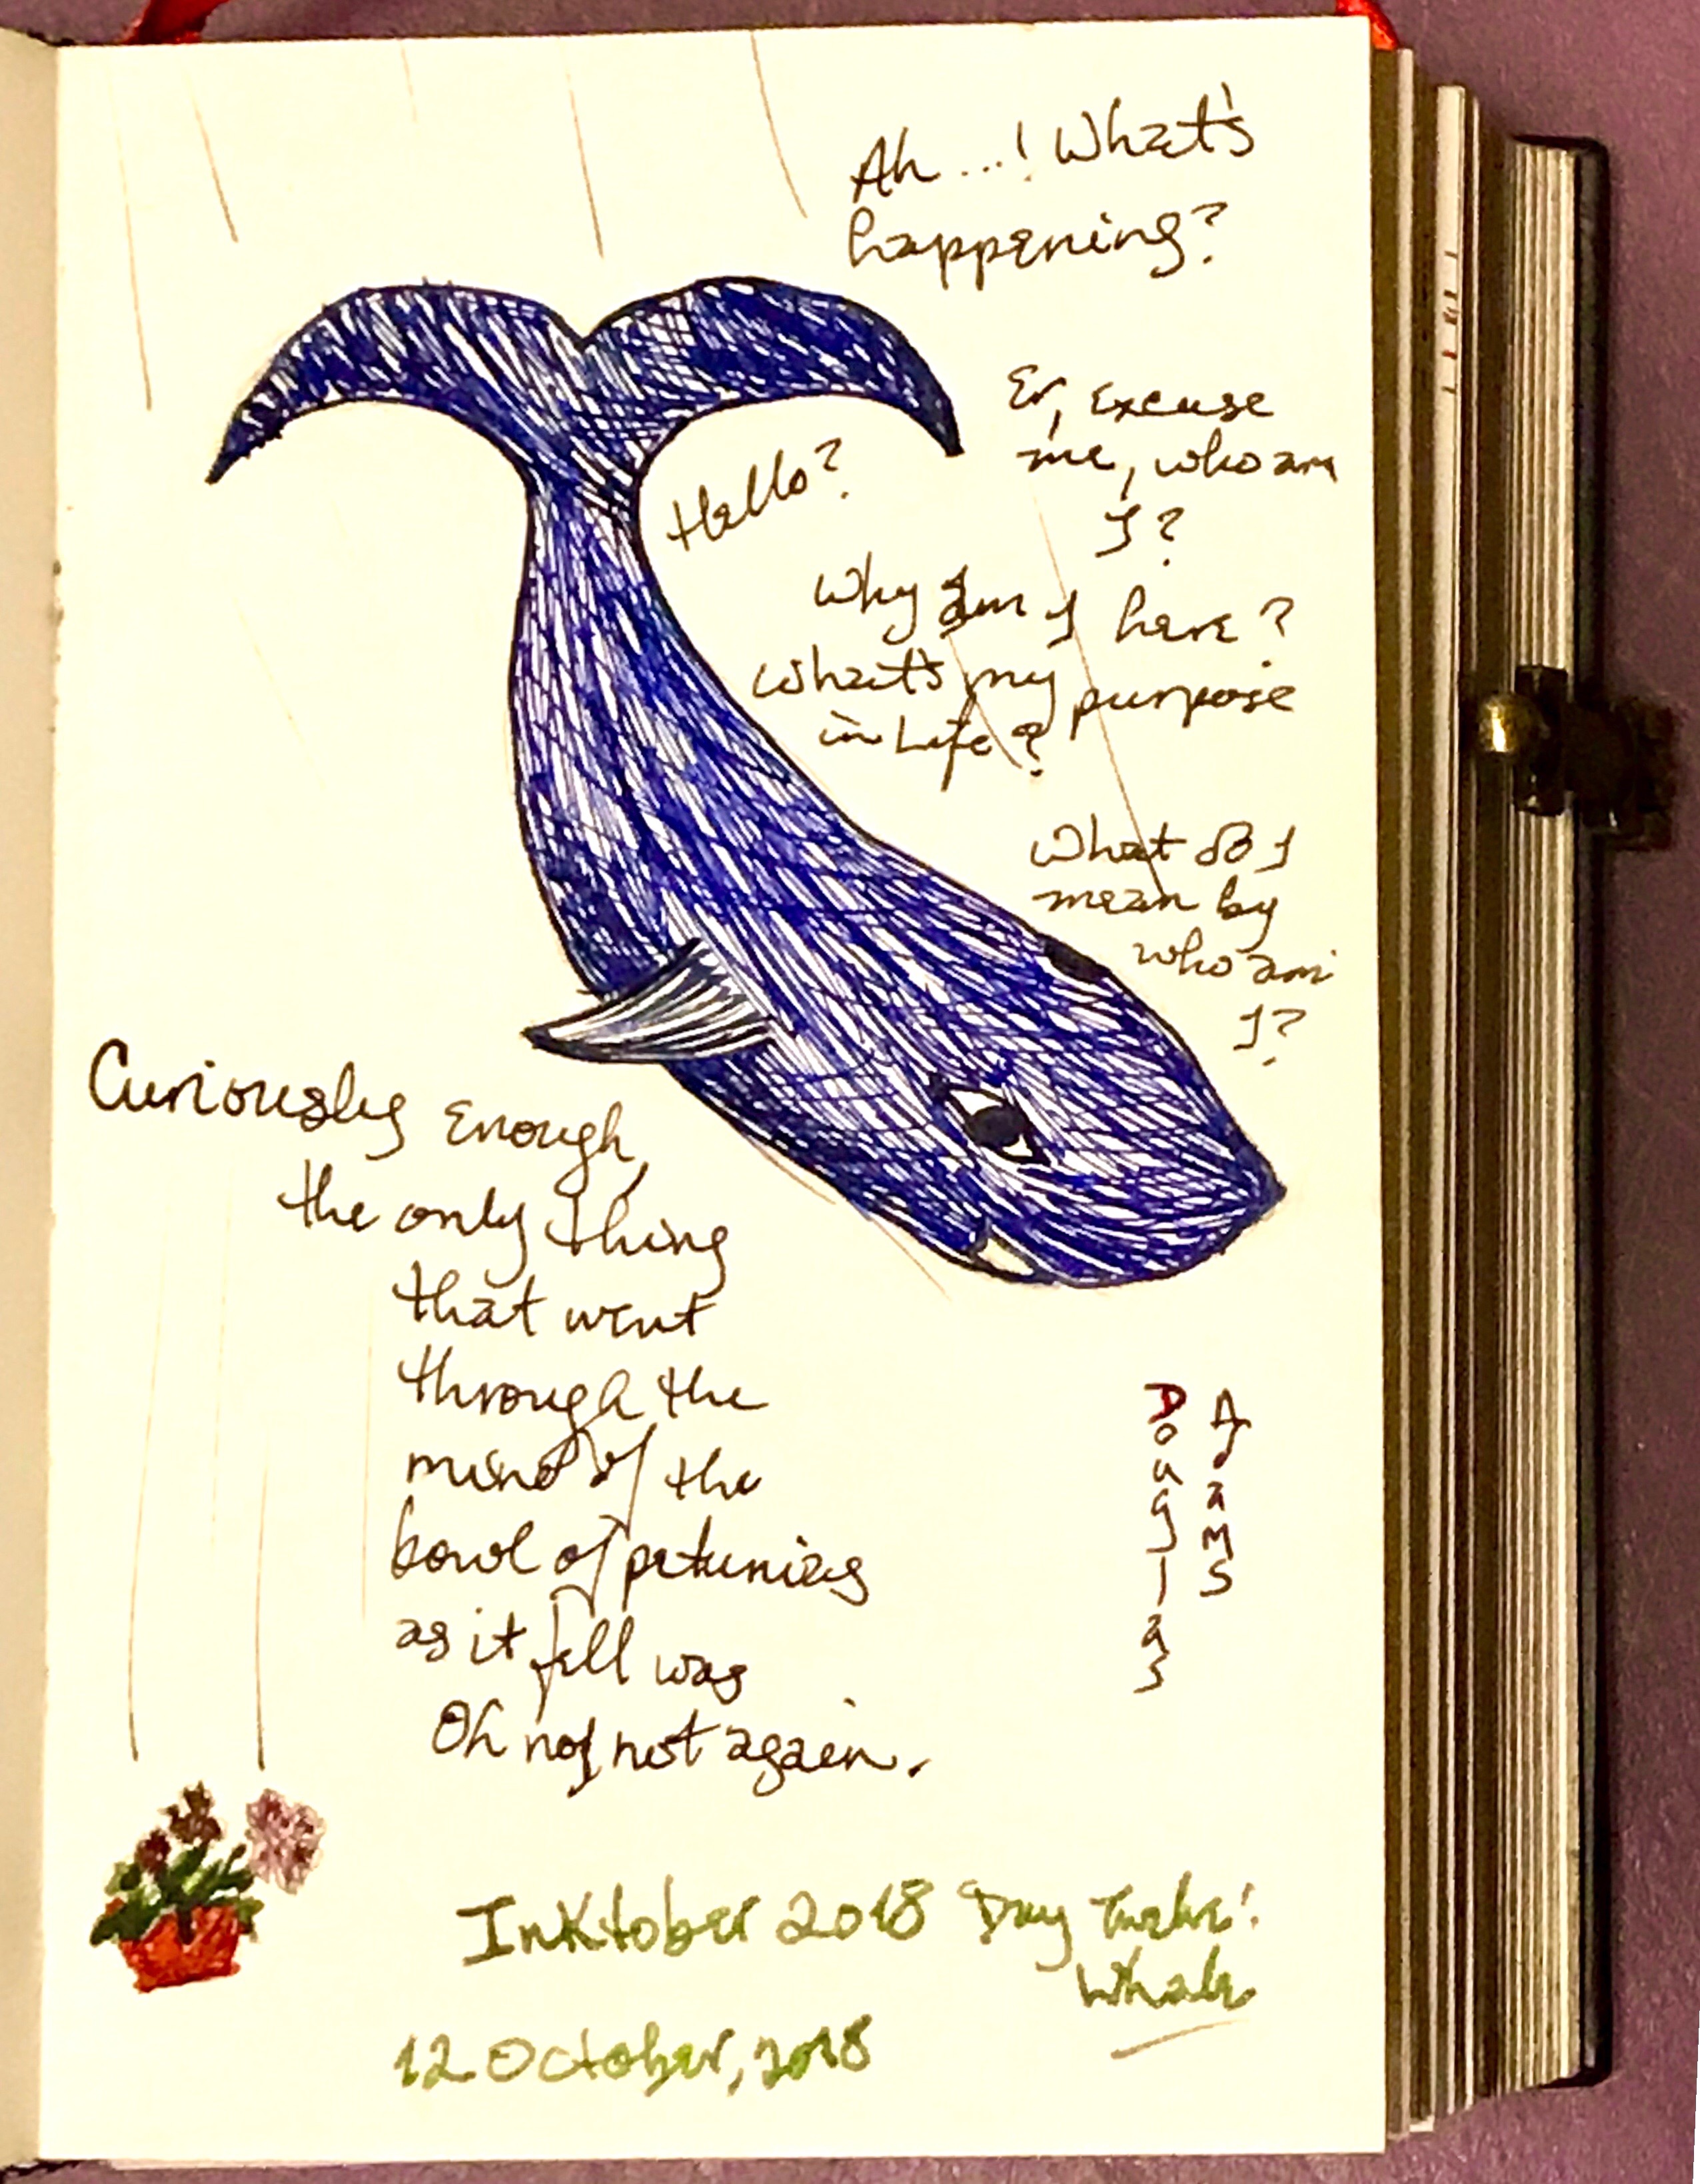 Ah...! What's
happening?
Er, excuse
me, who am
I?
Hello?
Why am I here?
What's my purpose
in Life?
What do I
mean by
who am
I?
Curiously Enough,
the only thing
that went
through the
mind of the
bowl of petunias
as it fell was
Oh no, not again.
Douglas
Adams
InKtober 2018 Day Twelve:
Whale
12 October, 2018